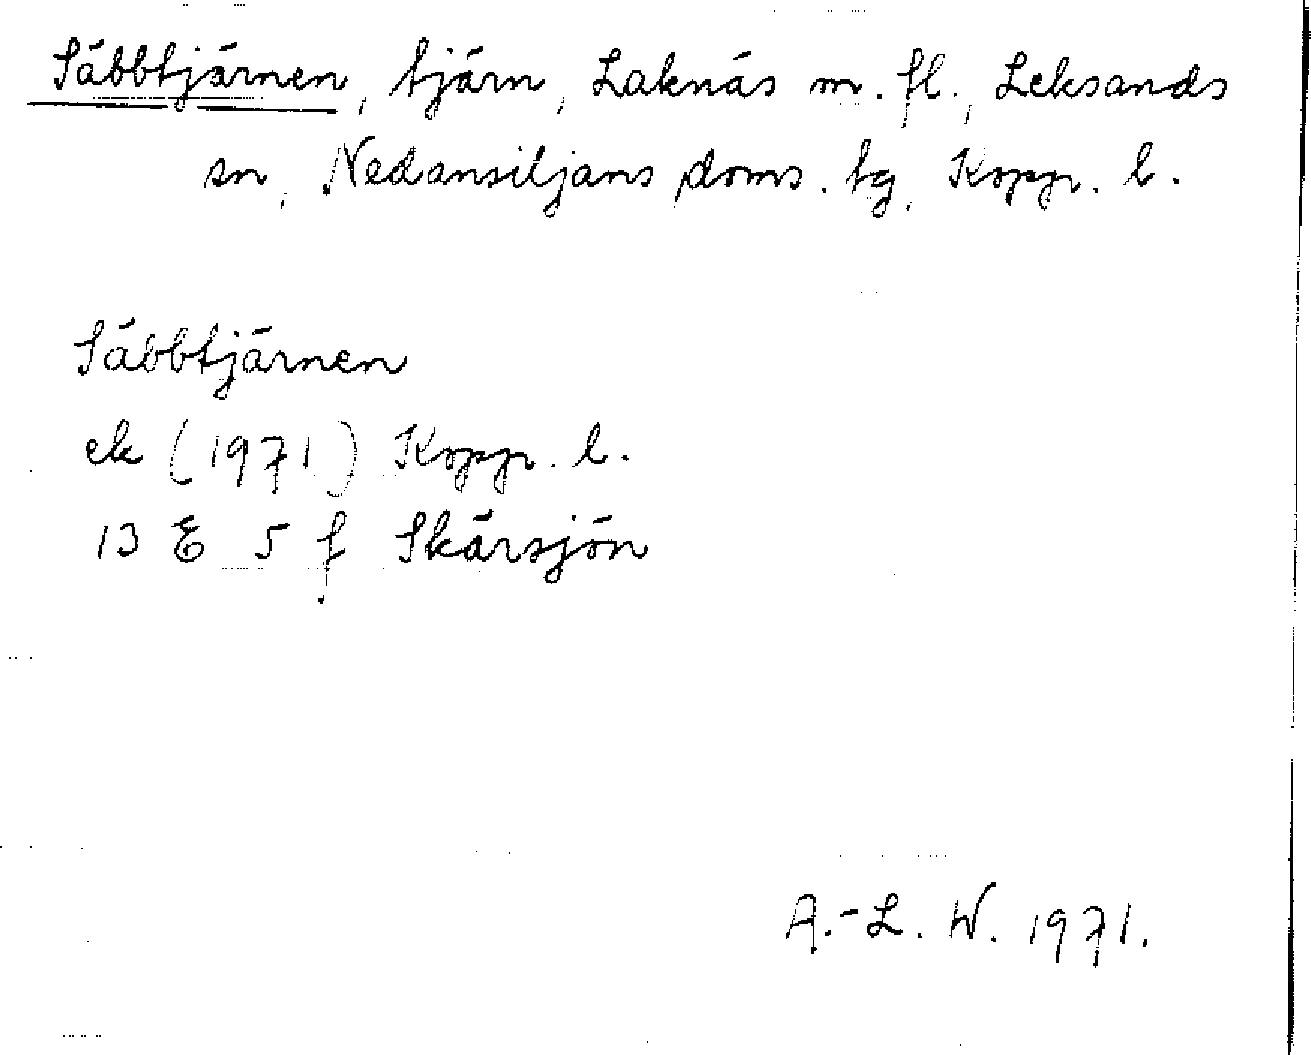 Säbbtjärnen, tjärn, Laknäs m. fl., Leksands
sn, Nedansiljans doms. tg, Kopp. l.
Säbbtjärnen
ek (1971) Kopp. l.
13 E 5 f Skärsjön
A.-L. W. 1971.